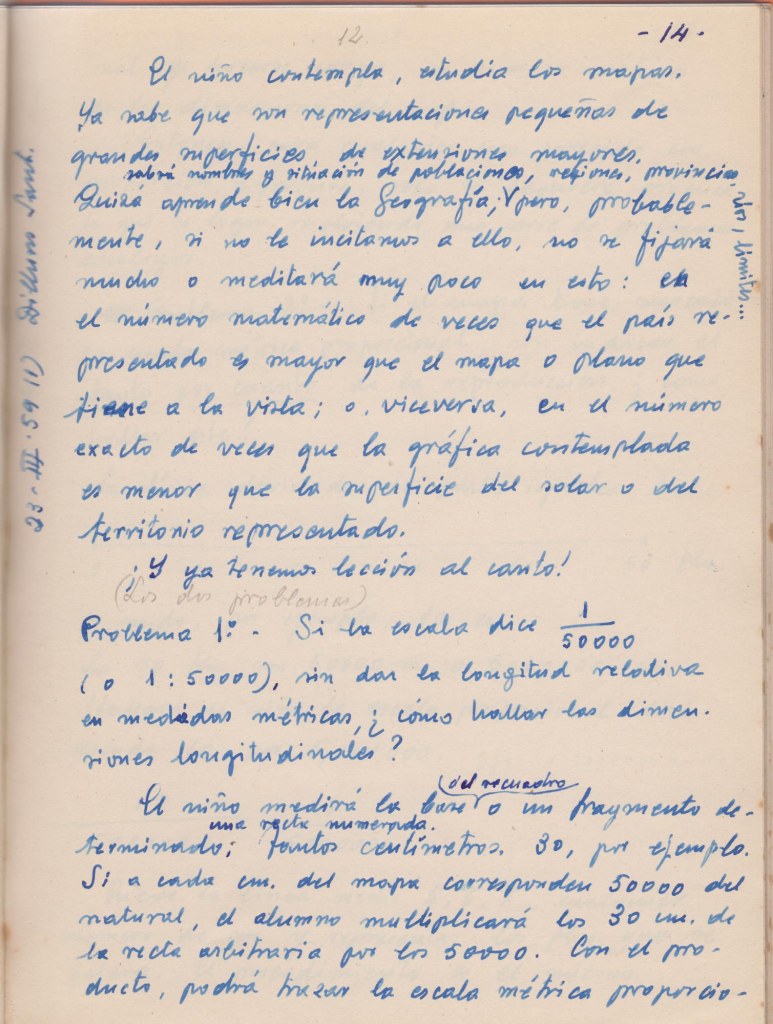 12
- 14 -
El niño contempla, estudia los mapas.
Ya sabe que son representaciones pequeñas de
grandes superficies, de extensiones mayores.
sabrá nombres y situación de poblaciones, regiones, provincias,
ríos, límites...
Quizá aprende bien la Geografía; pero, probable-
mente, si no le incitamos a ello, no se fijará
mucho o meditará muy poco en esto: en
el número matemático de veces que el país re-
presentado es mayor que el mapa o plano que
tiene a la vista; o, viceversa, en el número
exacto de veces que la gráfica contemplada
es menor que la superficie del solar o del
territorio representado.
¡Y ya tenemos lección al canto!
(Los dos problemas)
Problema 1º. - Si la escala dice 1/50000
(o 1:50000), sin dar la longitud relativa
en medidas métricas, ¿cómo hallar las dimen-
siones longitudinales?
(del recuadro
El niño medirá la base o un fragmento de-
una recta numerada.
terminado; tantos centímetros. 30, por ejemplo.
Si a cada cm. del mapa corresponden 50000 del
natural, el alumno multiplicará los 30 cm. de
la recta arbitraria por los 50000. Con el pro-
ducto, podrá trazar la escala métrica proporcio-
23-III-59 11) Dilluns